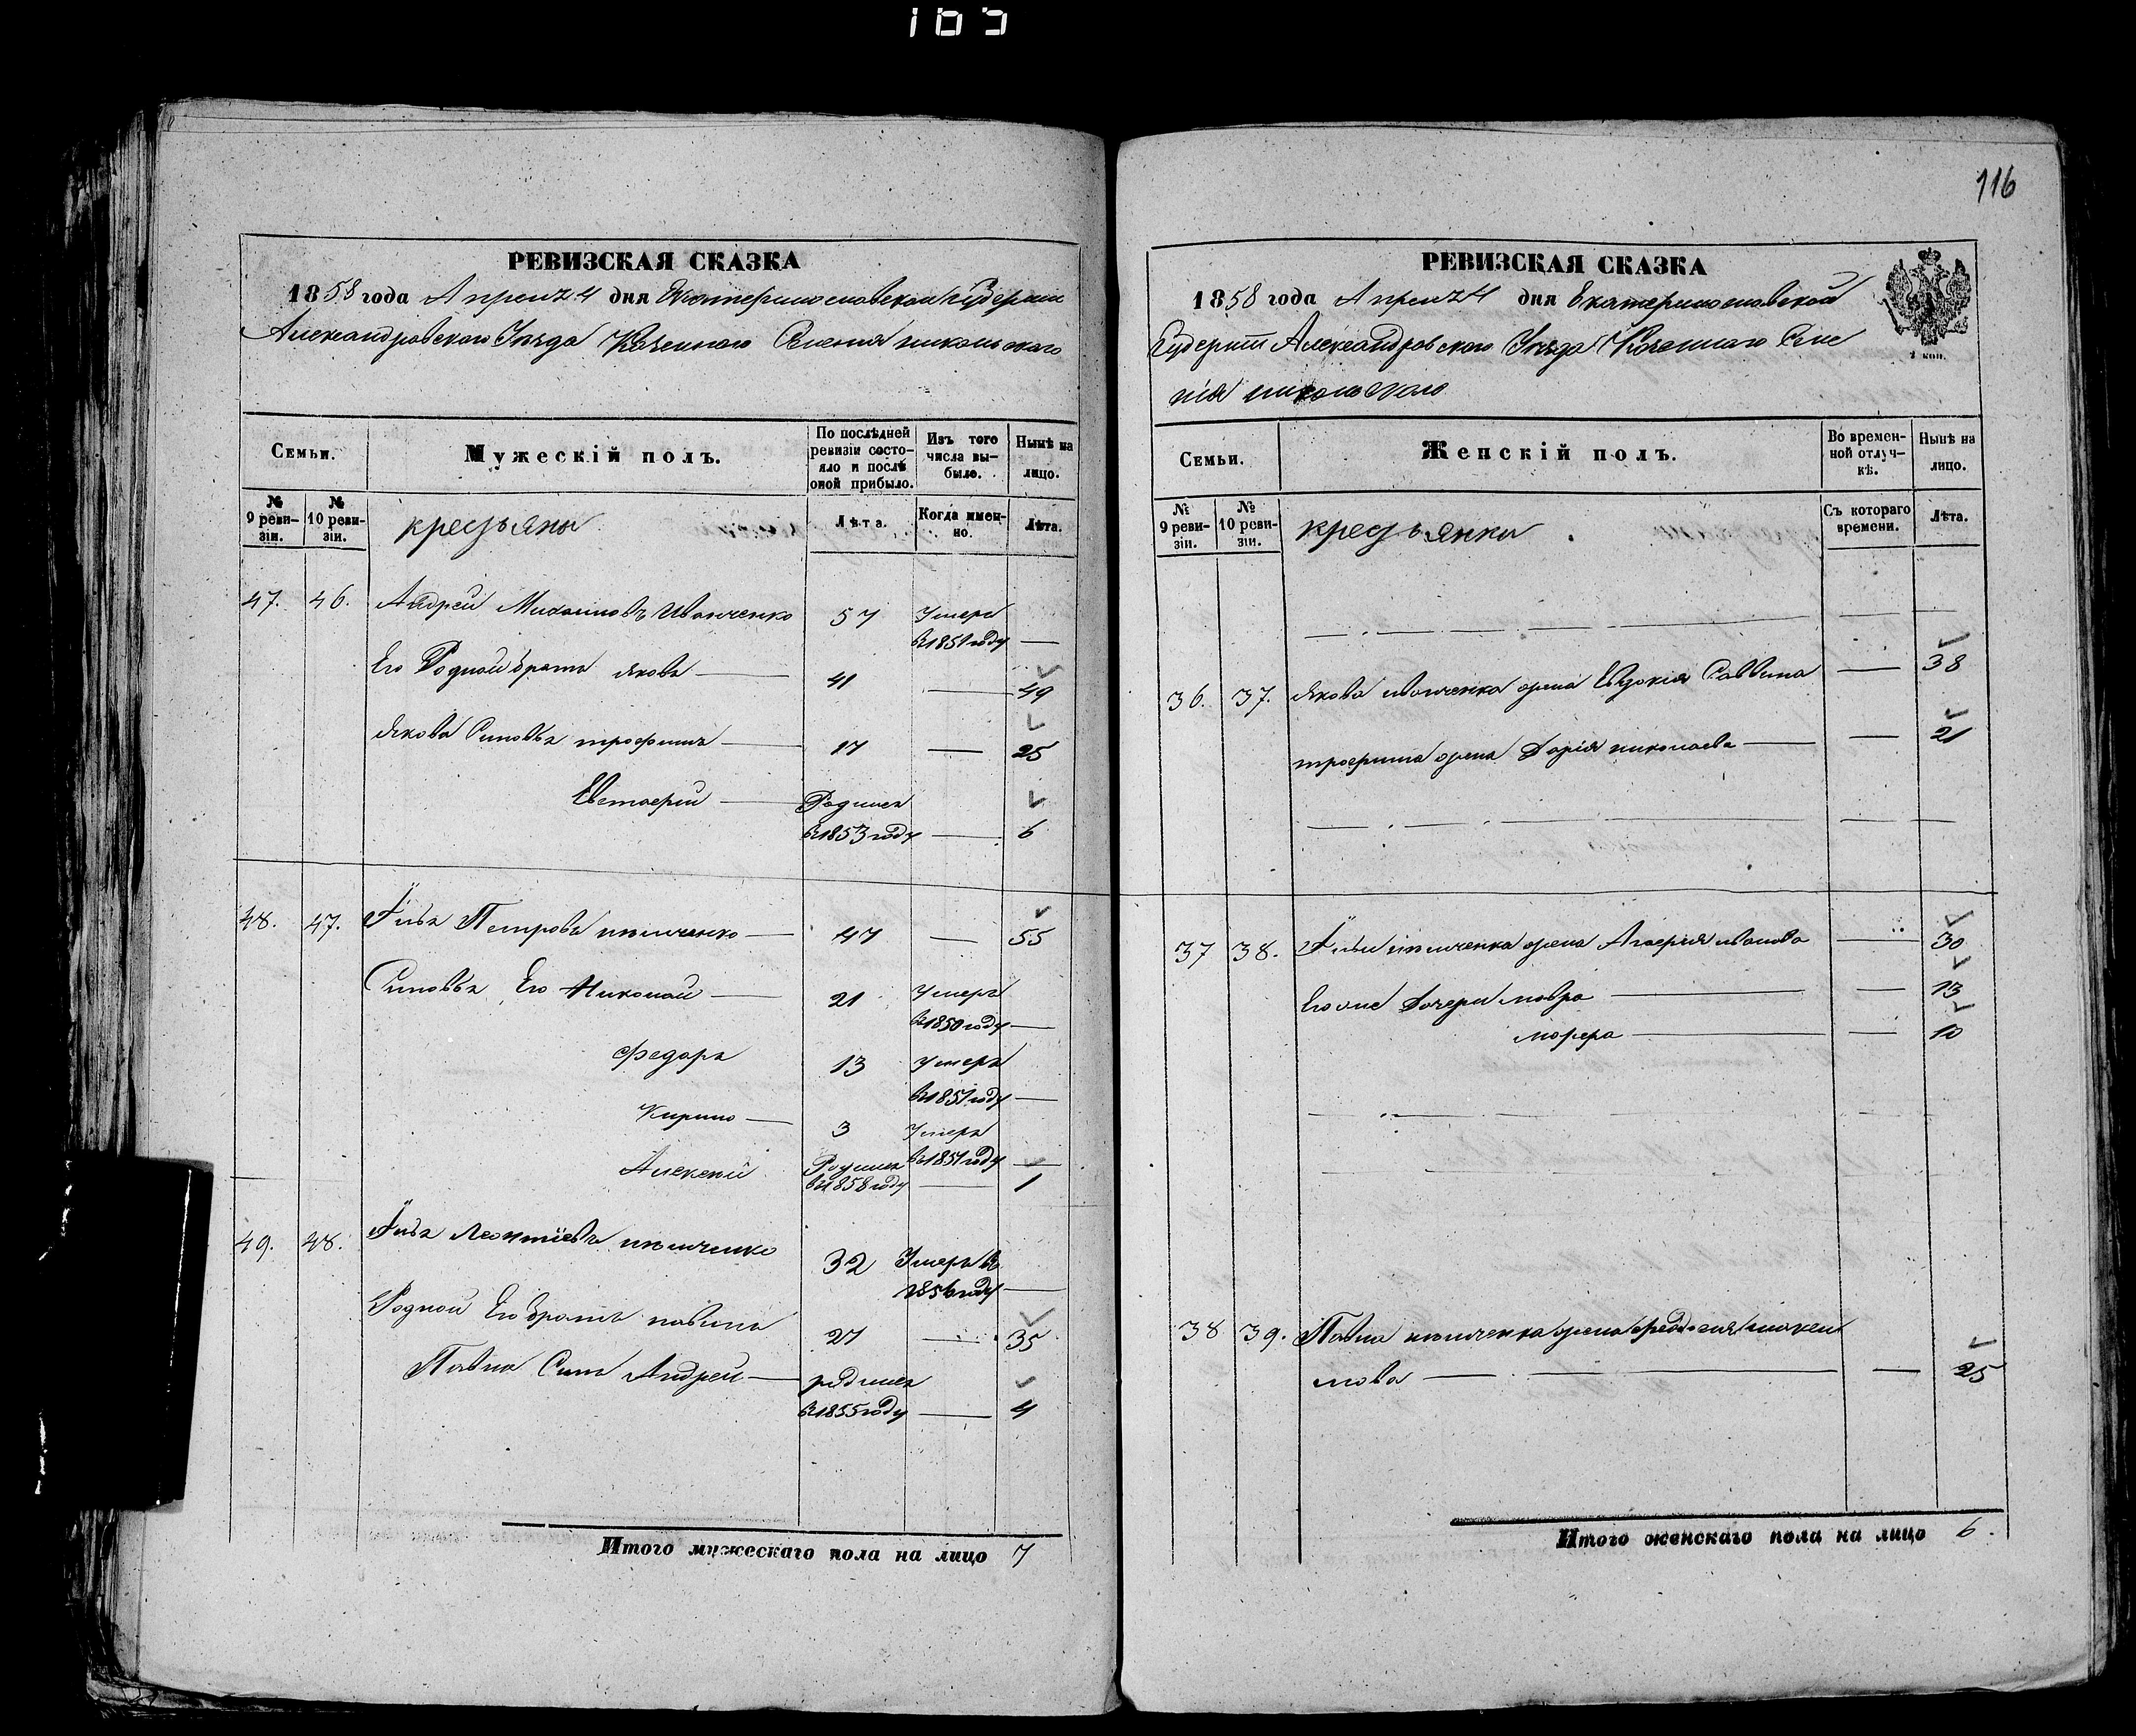 165
РЕВИЗСКАЯ СКАЗКА
1858 года Апреля 4 дня Екатеринославской Губернии
Александровского Уезда Казенного Селения Никольского
Семьи.
Мужескій полъ.
По послѣдней ревизіи состояло и послѣ оной прибыло.
Изъ того числа выбыло.
Нынѣ на лицо.
№ 9 ревизіи.
№ 10 ревизіи.
крестьяны
Лѣта.
Когда именно.
Лѣта.
47. 46. Андрей Михаиловъ Иванченко 57 Умеръ
въ 1851 году —
Его Родной братъ Яковъ — 41 — 49
Якова Сыновья трофимъ — 17 — 25
Евстафій — Родился
въ 1853 году — 6
48. 47. Илья Петровъ — 47 — 55
Сыновья Его Николай — 21 Умеръ
въ 1850 году —
Федоръ 13 Умеръ
въ 1851 году —
Кирило — 3 Умеръ
въ 1851 году —
Алексей Родился
въ 1858 году — 1
49. 48. Илья Леонтіевъ 32 Умеръ въ
1856 году —
Родной Его братъ павелъ 27 — 35
Павла Сынъ Андрей — родился
въ 1855 году — 4
Итого мужескаго пола на лицо 7
116
РЕВИЗСКАЯ СКАЗКА
1858 года Апреля 4 дня Екатеринославской
Губерніи Александровского Уезда Казенного Селе
нія никольского
1 коп.
Семьи.
Женскій полъ.
Во временной отлучкѣ.
Нынѣ на лицо.
№ 9 ревизіи.
№ 10 ревизіи.
крестьянки
Съ котораго времени.
Лѣта.
36. 37. Якова иванченка жена Евдокія Саввина — 38
трофима жена Дарія николаева — — 21
37 38. Ильи жена Агафія иванова — 30
Его же дочери мавра — — 13
марфа — — 10
38 39. Павла жена федосія
мова — — 25
Итого женскаго пола на лицо 6.